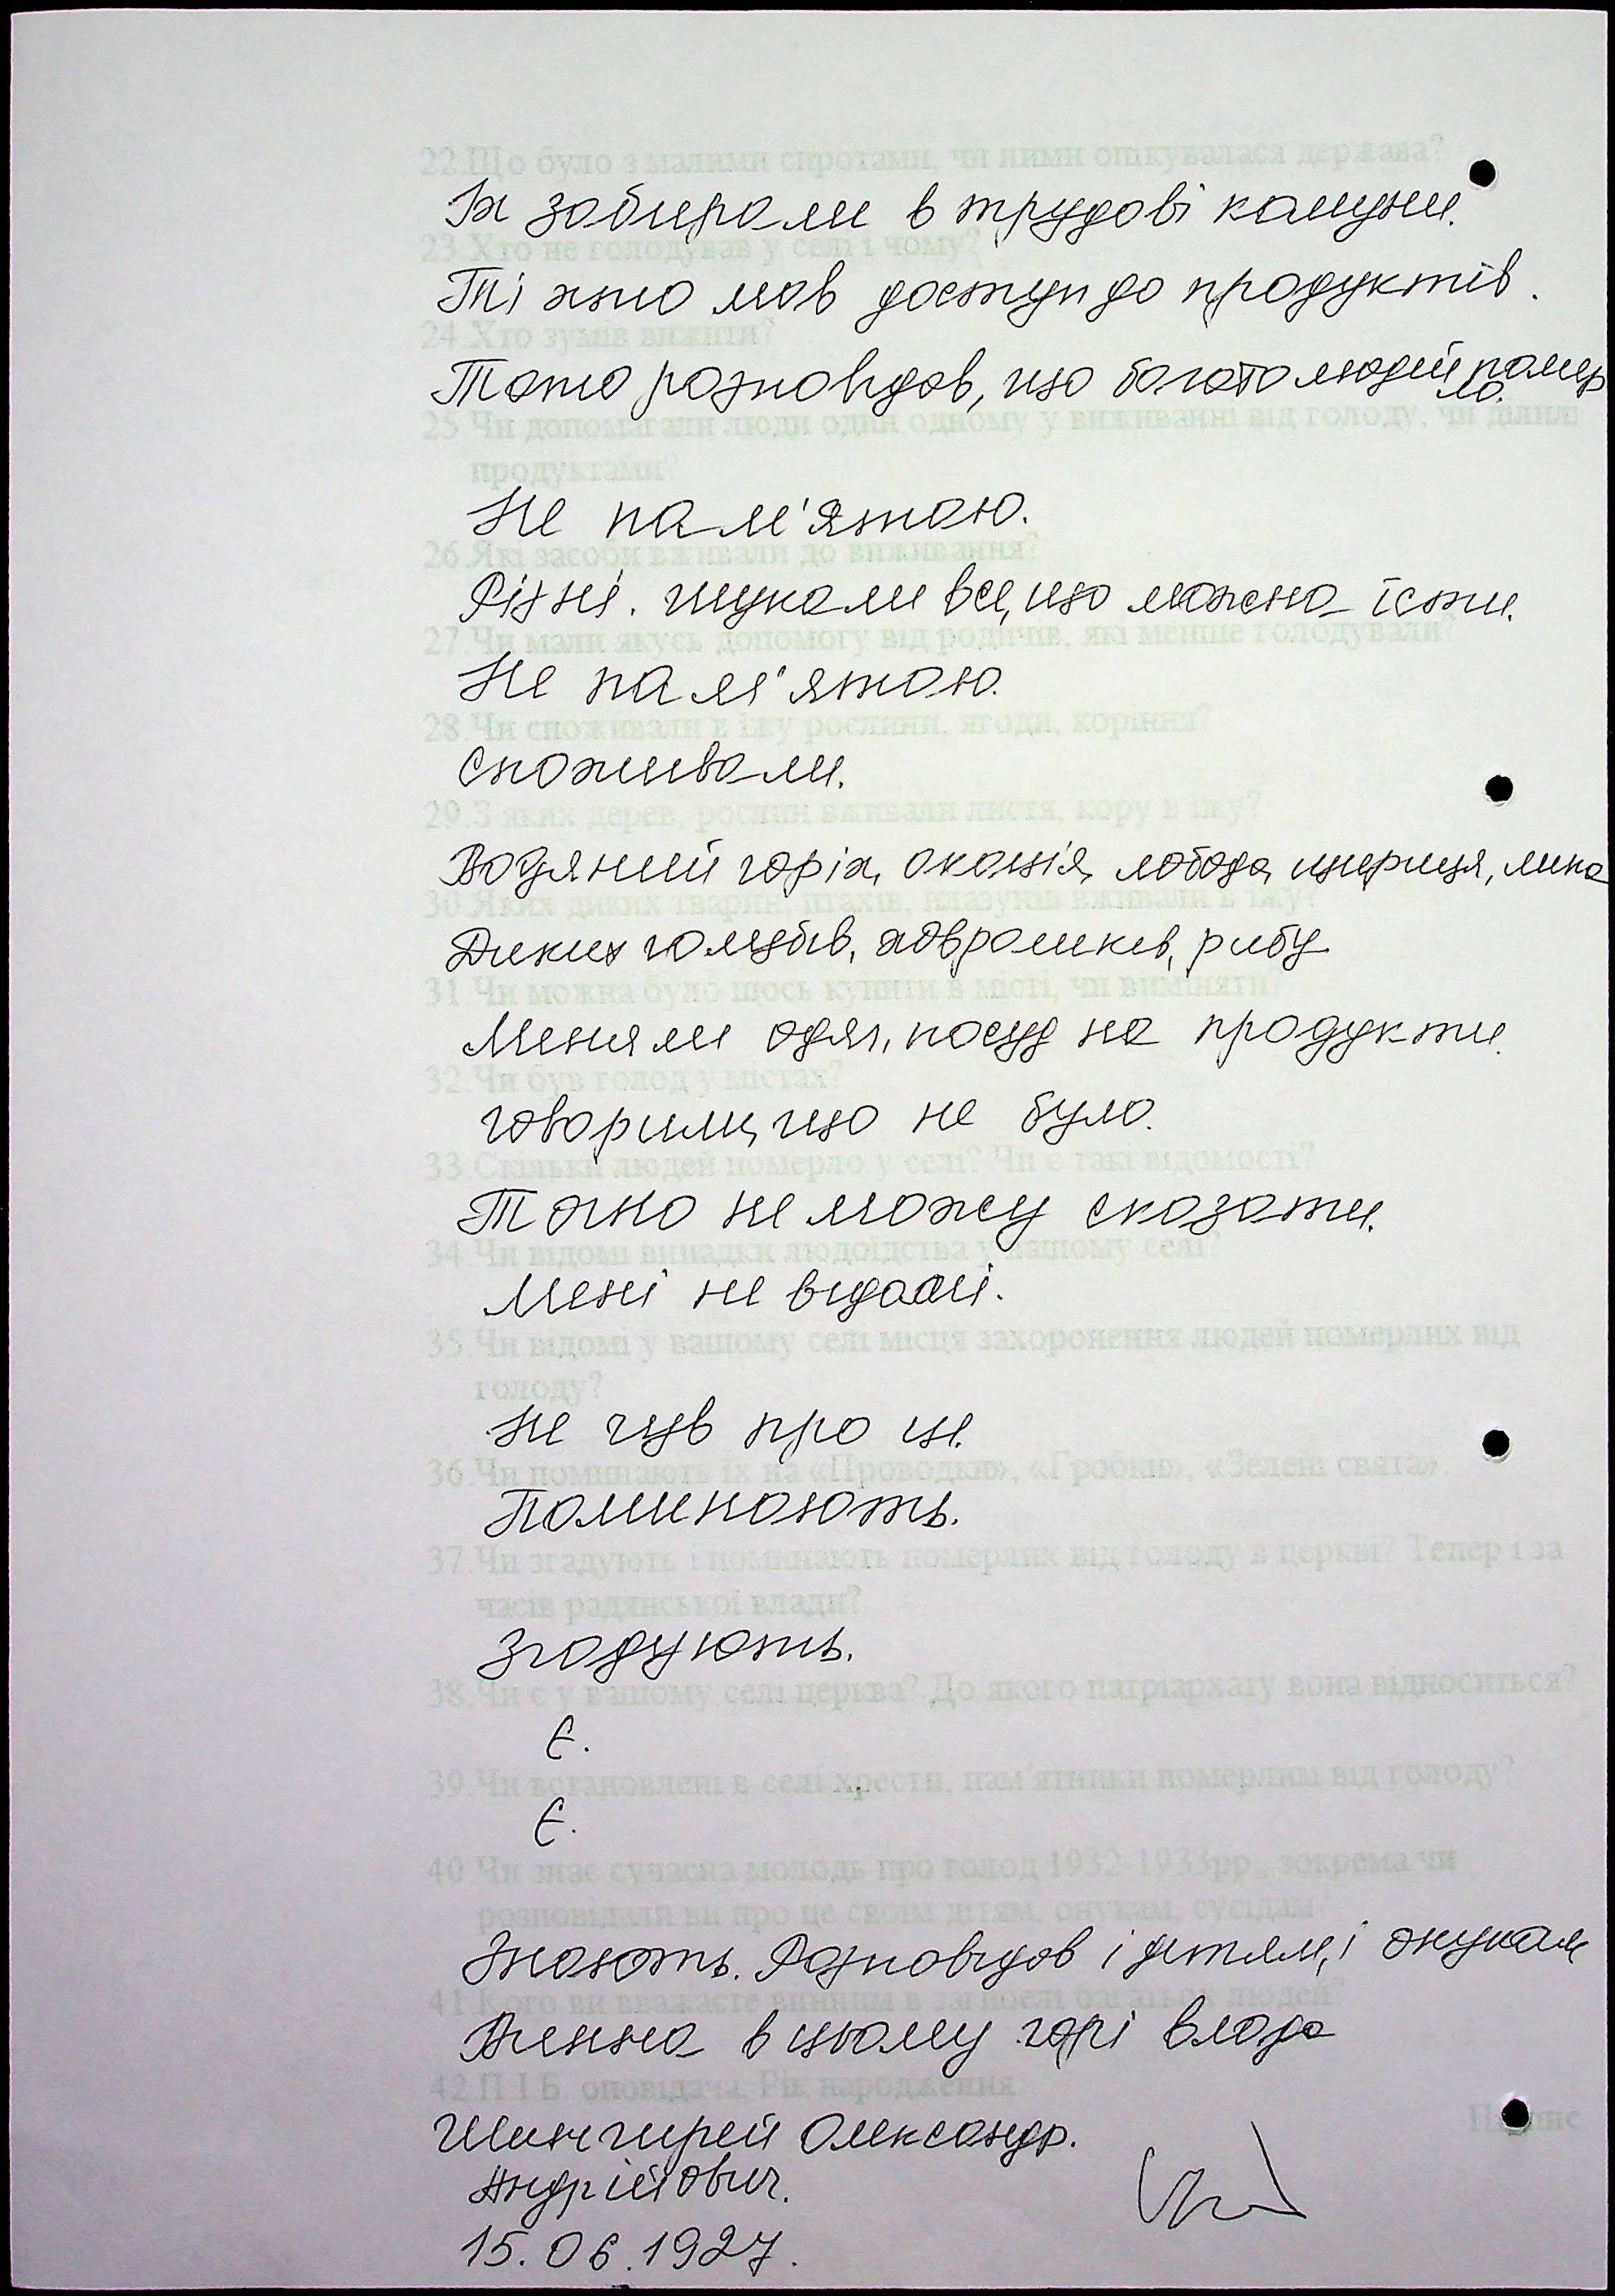 22.Що було з малими сиротами, чи ними опікувалася держава?
Їх забирали в трудові камуни.
23.Хто не голодував у селі і чому?
Ті хто мав доступ до продуктів.
24.Хто зумів вижити?
Тато розповідав, що багато людей помер
ло.
25.Чи допомагали люди один одному у виживанні від голоду, чи ділились
продуктами?
Не пам'ятаю.
26.Які засоби вживали до виживання?
Різні. шукали все, що можна їсти.
27.Чи мали якусь допомогу від родичів, які менше голодували?
Не пам'ятаю.
28.Чи споживали в їжу рослини, ягоди, коріння?
Споживали.
29.З яких дерев, рослин вживали листя, кору в їжу?
Водяний горіх, акація, лобода, щериця, липа
30.Яких диких тварин, птахів, плазунів вживали в їжу?
Диких голубів, ховрашків, рибу
31.Чи можна було щось купити в місті, чи виміняти?
Меняли одяг, посуд на продукти.
32.Чи був голод у містах?
говорили, що не було.
33.Скільки людей померло у селі? Чи є такі відомості?
Точно не можу сказати.
34.Чи відомі випадки людоїдства у вашому селі?
Мені не відомі.
35.Чи відомі у вашому селі місця захоронення людей померлих від
голоду?
не чув про це.
36.Чи поминають їх на «Проводки», «Гробки», «Зелені свята».
Поминають.
37.Чи згадують і поминають померлих від голоду в церкві? Тепер і за
часів радянської влади?
Згадують.
38.Чи є у вашому селі церква? До якого патріархату вона відноситься?
Є.
39.Чи встановлені в селі хрести, пам'ятники померлим від голоду?
Є.
40.Чи знає сучасна молодь про голод 1932-1933рр., зокрема чи
розповідали ви про це своїм дітям, онукам, сусідам?
Знають. Розповідав і дітям, і онукам
41.Кого ви вважаєте винним в загибелі багатьох людей?
Винна в цьому горі влада
42.П.І.Б. оповідача. Рік народження.
Підпис
Шингирей Олександр.
Андрійович.
15.06.1927.